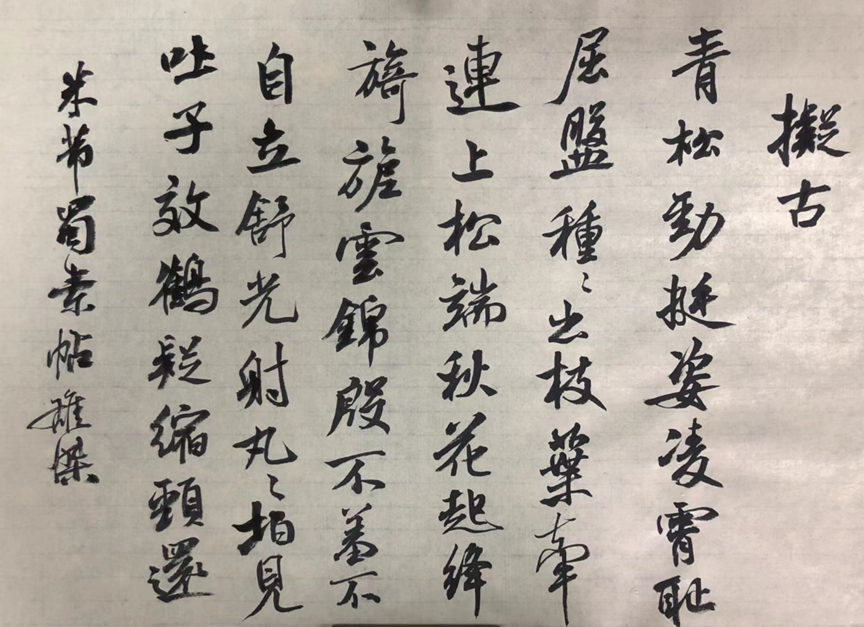 擬古
青松勁挺姿凌霄耻
屈盤種〻出枝葉牽
連上松端秋花起絳
旖旎雲錦殷不羞不
自立舒光射丸〻柏見
吐子效鶴疑縮頸還
米芾蜀素帖雄傑